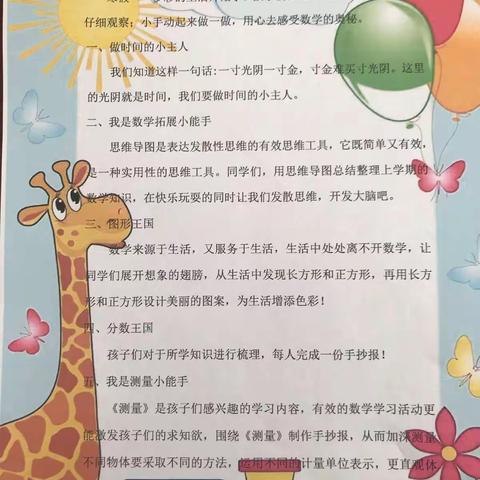 仔细观察；小手动起来做一做，用心去感受数学的奥秘。
一、做时间的小主人
我们知道这样一句话:一寸光阴一寸金，寸金难买寸光阴。这里
的光阴就是时间，我们要做时间的小主人。
二、我是数学拓展小能手
思维导图是表达发散性思维的有效思维工具，它既简单又有效，
是一种实用性的思维工具。同学们，用思维导图总结整理上学期的
数学知识，在快乐玩耍的同时让我们发散思维，开发大脑吧。
三、图形王国
数学来源于生活，又服务于生活，生活中处处离不开数学，让
同学们展开想象的翅膀，从生活中发现长方形和正方形，再用长方
形和正方形设计美丽的图案，为生活增添色彩！
四、分数王国
孩子们对于所学知识进行梳理，每人完成一份手抄报！
五、我是测量小能手
《测量》是孩子们感兴趣的学习内容，有效的数学学习活动更
能激发孩子们的求知欲，围绕《测量》制作手抄报，从而加深测量
不同物体要采取不同的方法，运用不同的计量单位表示，更直观体